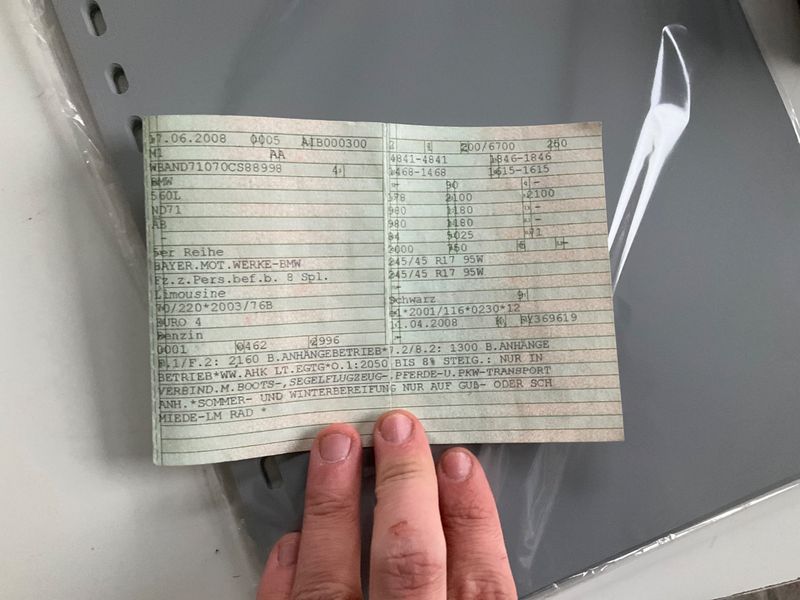 17.06.2008 0005 AIB000300
M1 AA
WBAND71070CS88998 4
BMW
560L
ND71
AB
-
5er Reihe
BAYER.MOT.WERKE-BMW
Fz.z.Pers.bef.b. 8 Spl.
Limousine
70/220*2003/76B
EURO 4
Benzin
0001 0462 2996
2 1 200/6700 250
4841-4841 1846-1846
1468-1468 1615-1615
- 90 -
178 2100 2100
980 1180 -
980 1180 -
84 5025 71
2000 750 5 -
245/45 R17 95W
245/45 R17 95W
-
Schwarz 9
e1*2001/116*0230*12
11.04.2008 K RY369619
F.1/F.2: 2160 B.ANHÄNGEBETRIEB*7.2/8.2: 1300 B.ANHÄNGE
BETRIEB*WW.AHK LT.EGTG*O.1:2050 BIS 8% STEIG.: NUR IN
VERBIND.M.BOOTS-,SEGELFLUGZEUG-,PFERDE-U.PKW-TRANSPORT
ANH.*SOMMER- UND WINTERBEREIFUNG NUR AUF GUß- ODER SCH
MIEDE-LM RAD *